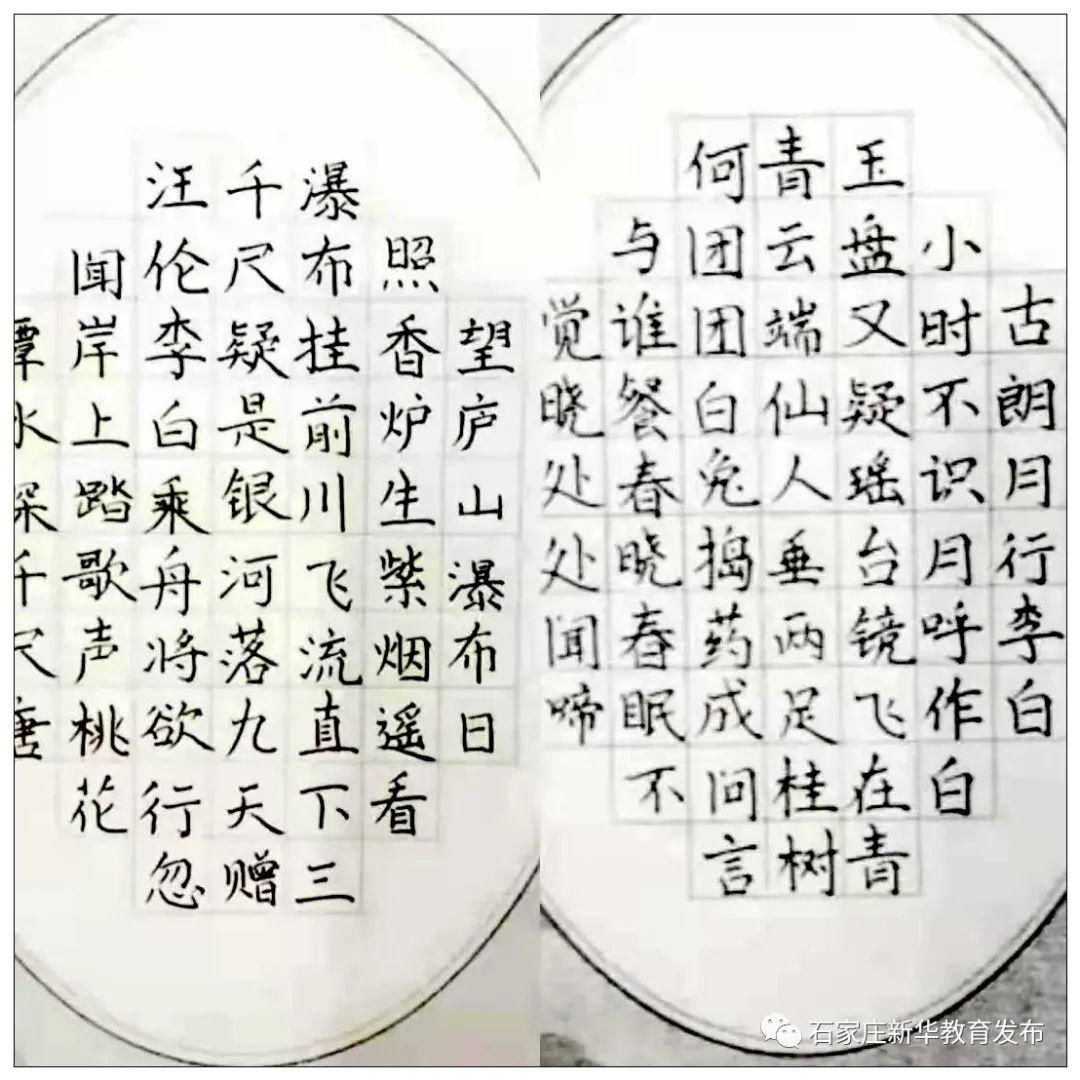 望庐山瀑布日
照香炉生紫烟遥看
瀑布挂前川飞流直下三
千尺疑是银河落九天赠
汪伦李白乘舟将欲行忽
闻岸上踏歌声桃花
潭水深千尺唐
古朗月行李白
小时不识月呼作白
玉盘又疑瑶台镜飞在青
青云端仙人垂两足桂树
何团团白兔捣药成问言
与谁餐春晓春眠不
觉晓处处闻啼
石家庄新华教育发布